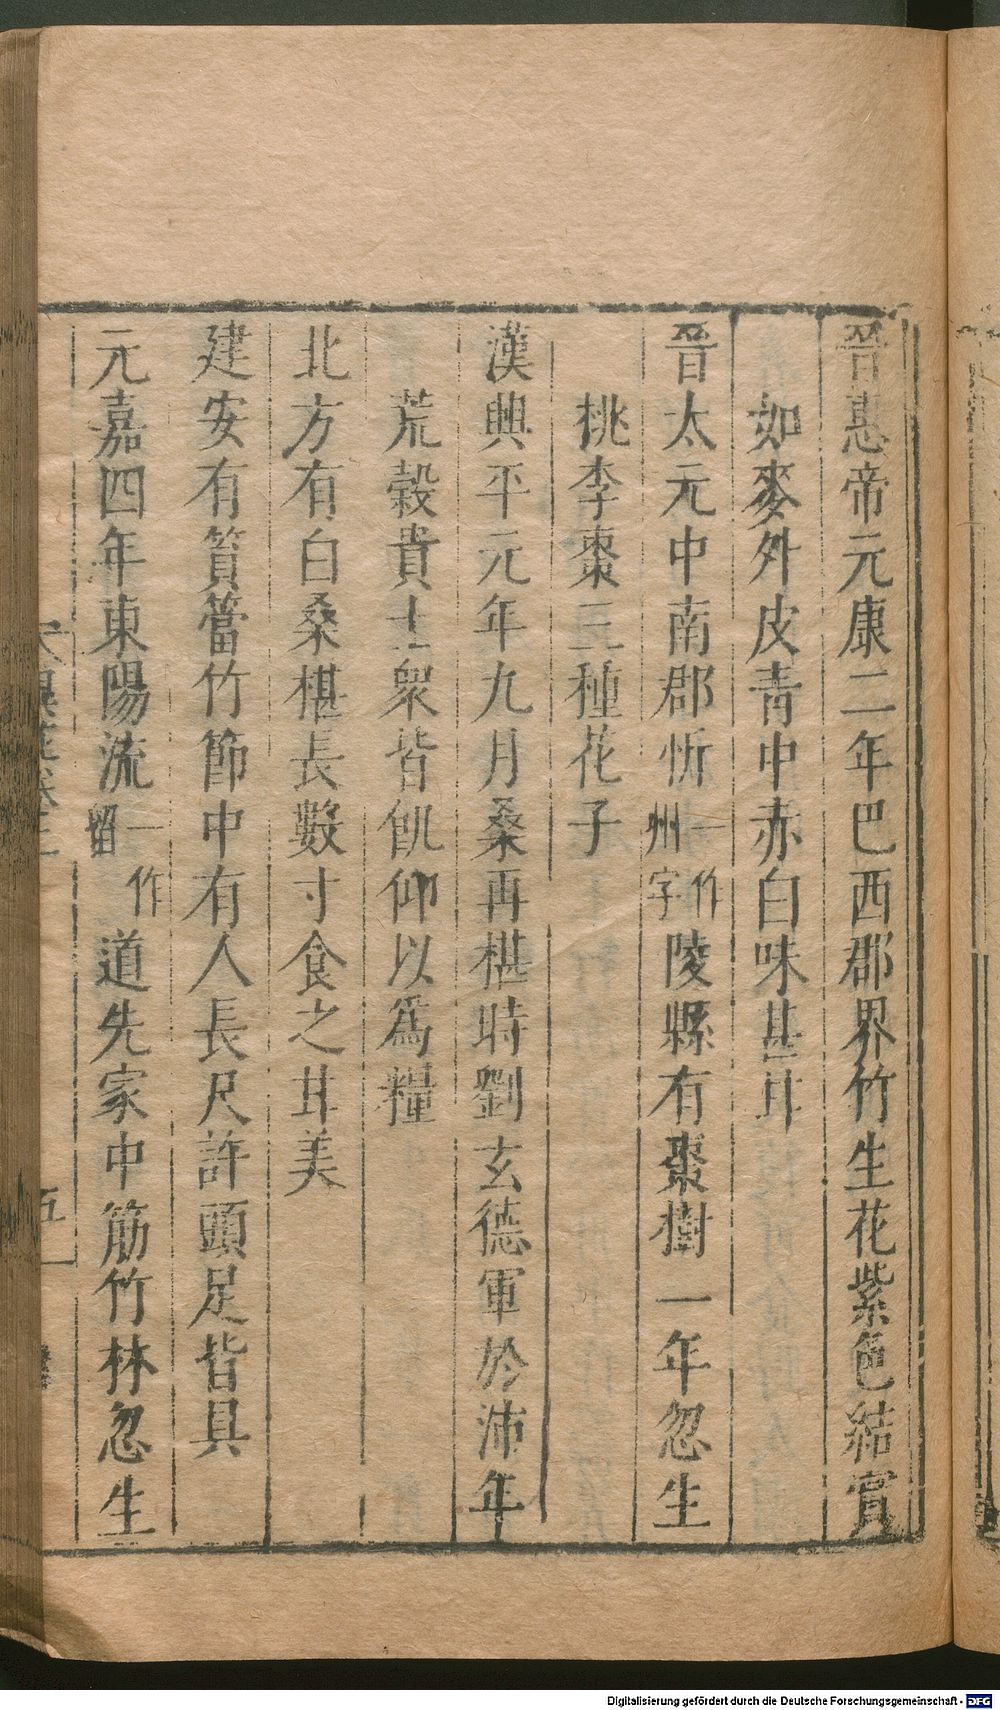 晉惠帝元康二年巴西郡界竹生花紫色結實
如麥外皮靑中赤白味甚甘
晉太元中南郡忻一作州字陵縣有棗樹一年忽生
桃李棗三種花子
漢興平元年九月桑再椹時劉玄德軍於沛年
荒穀貴士衆皆飢仰以爲糧
北方有白桑椹長數寸食之甘美
建安有篔簹竹節中有人長尺許頭足皆具
元嘉四年東陽流一作留道先家中筋竹林忽生
五
Digitalisierung gefördert durch die Deutsche Forschungsgemeinschaft - DFG